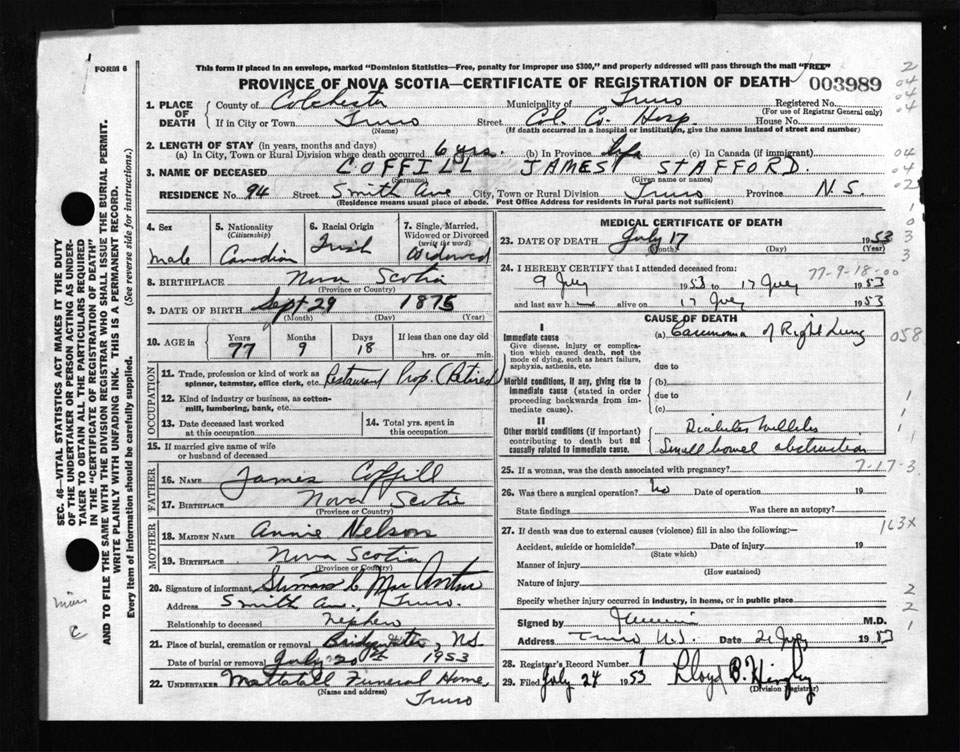 FORM 6
This form if placed in an envelope, marked "Dominion Statistics—Free, penalty for improper use $300," and properly addressed will pass through the mail "FREE"
PROVINCE OF NOVA SCOTIA—CERTIFICATE OF REGISTRATION OF DEATH 003989
1. PLACE OF DEATH County of Colchester Municipality of Truro Registered No.
(For use of Registrar General only)
If in City or Town Truro Street Col. Co. Hosp. House No.
(Name) (If death occurred in a hospital or institution, give the name instead of street and number)
2. LENGTH OF STAY (in years, months and days)
(a) In City, Town or Rural Division where death occurred 6 yrs. (b) In Province life (c) In Canada (if immigrant)
3. NAME OF DECEASED COFFILL JAMES STAFFORD.
(Surname) (Given name or names)
RESIDENCE No. 94 Street Smith Ave City, Town or Rural Division Truro Province N.S.
(Residence means usual place of abode. Post Office Address for residents in rural parts not sufficient)
4. Sex Male
5. Nationality (Citizenship) Canadian
6. Racial Origin Irish
7. Single, Married, Widowed or Divorced (write the word) Widowed
8. BIRTHPLACE Nova Scotia
(Province or Country)
9. DATE OF BIRTH Sept 29 1875
(Month) (Day) (Year)
10. AGE in Years 77 Months 9 Days 18 If less than one day old hrs. or min.
OCCUPATION
11. Trade, profession or kind of work as spinner, teamster, office clerk, etc. Restaurant Prop. (Retired)
12. Kind of industry or business, as cotton-mill, lumbering, bank, etc.
13. Date deceased last worked at this occupation
14. Total yrs. spent in this occupation
15. If married give name of wife or husband of deceased
FATHER
16. NAME James Coffill
17. BIRTHPLACE Nova Scotia
(Province or Country)
MOTHER
18. MAIDEN NAME Annie Nelson
19. BIRTHPLACE Nova Scotia
(Province or Country)
20. Signature of informant
Address Smith Ave., Truro.
Relationship to deceased nephew
21. Place of burial, cremation or removal Bridgewater, N.S.
Date of burial or removal July 20th 1953
22. UNDERTAKER Mattatall Funeral Home,
(Name and address) Truro
MEDICAL CERTIFICATE OF DEATH
23. DATE OF DEATH July 17 1953
(Month) (Day) (Year)
24. I HEREBY CERTIFY that I attended deceased from:
77-9-18-00
9 July 1953 to 17 July 1953
and last saw h alive on 17 July 1953
CAUSE OF DEATH
I
Immediate cause (a) Carcinoma of Right Lung
058
Give disease, injury or complication which caused death, not the mode of dying, such as heart failure, asphyxia, asthenia, etc.
due to
Morbid conditions, if any, giving rise to immediate cause (stated in order proceeding backwards from immediate cause).
(b)
due to
(c)
II
Other morbid conditions (if important) contributing to death but not causally related to immediate cause.
Diabetes Mellitus
Small bowel obstruction
25. If a woman, was the death associated with pregnancy? 7-17-3
26. Was there a surgical operation? No Date of operation 19
State findings Was there an autopsy?
163X
27. If death was due to external causes (violence) fill in also the following:—
Accident, suicide or homicide? Date of injury 19
(State which)
Manner of injury
(How sustained)
Nature of injury
Specify whether injury occurred in industry, in home, or in public place
Signed by M.D.
Address Truro N.S. Date 21 July 1953
28. Registrar's Record Number 1
29. Filed July 24 1953 Lloyd B.
(Division Registrar)
SEC. 46—VITAL STATISTICS ACT MAKES IT THE DUTY
OF THE UNDERTAKER OR PERSON ACTING AS UNDER-
TAKER TO OBTAIN ALL THE PARTICULARS REQUIRED
IN THE "CERTIFICATE OF REGISTRATION OF DEATH"
AND TO FILE THE SAME WITH THE DIVISION REGISTRAR WHO SHALL ISSUE THE BURIAL PERMIT.
WRITE PLAINLY WITH UNFADING INK. THIS IS A PERMANENT RECORD.
Every item of information should be carefully supplied. (See reverse side for instructions.)